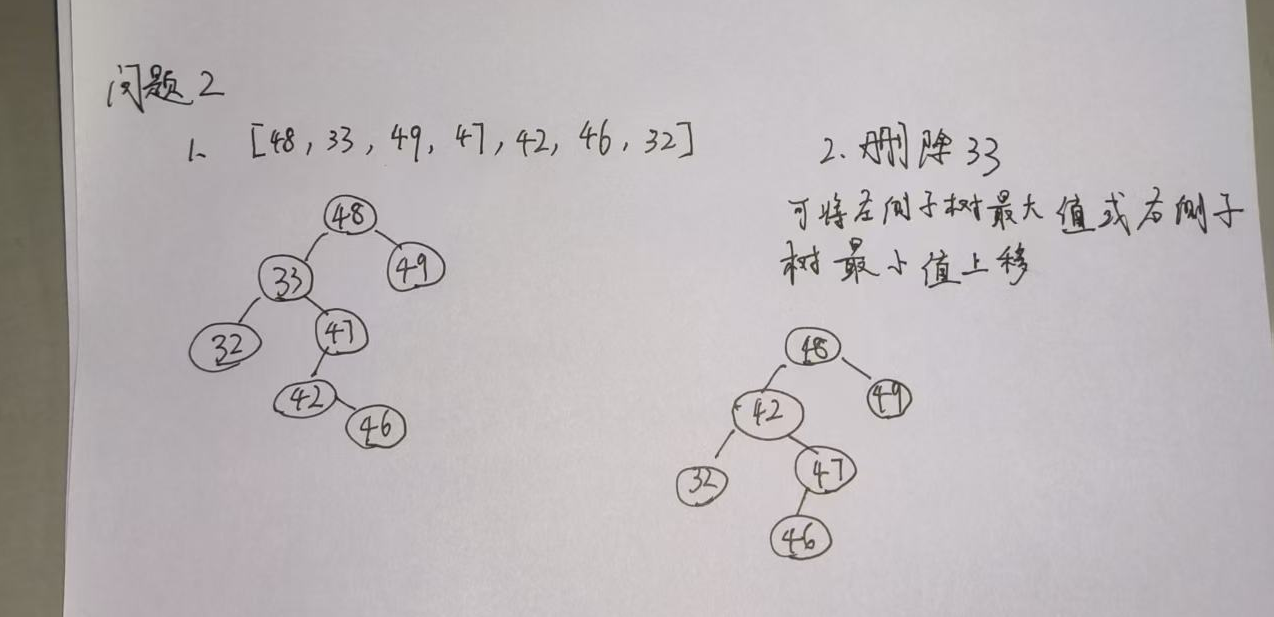 问题2
1. [48, 33, 49, 47, 42, 46, 32]
48
33 49
32 47
42
46
2. 删除33
可将左侧子树最大值或右侧子
树最小值上移
48
42 49
32 47
46